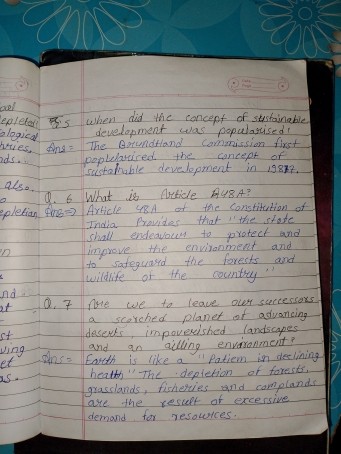 Q.5 when did the concept of sustainable
development was popularised?
Ans= The Brundtland Commission first
poplularised the concept of
sustainable development in 1987.
Q. 6 What is Article 48A?
Ans=> Article 48A of the Constitution of
India Provides that "the state
shall endeavour to protect and
improve the environment and
to safeguard the forests and
wildlife of the country"
Q. 7 Are we to leave our successors
a scorched planet of advancing
deserts, impoverished landscapes
and an ailling environment?
Ans= Earth is like a "Patient in declining
health" The depletion of forests,
grasslands, fisheries and croplands
are the result of excessive
demand for resources.